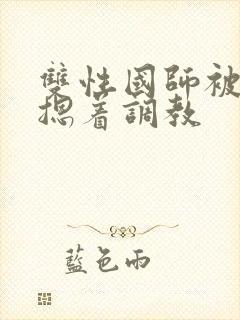 雙性國師被
摁着調教
藍色雨